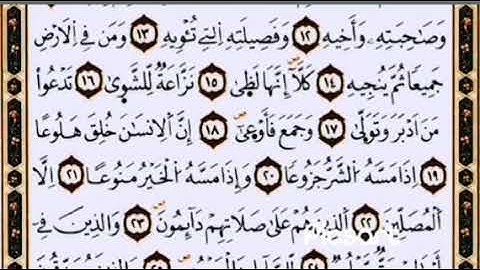 وَصَاحِبَتِهِۦ وَأَخِيهِ ١٢ وَفَصِيلَتِهِ الَّتِي تُـْٔوِيهِ ١٣ وَمَن فِي الْأَرْضِ
جَمِيعًا ثُمَّ يُنجِيهِ ١٤ كَلَّا إِنَّهَا لَظَىٰ ١٥ نَزَّاعَةً لِّلشَّوَىٰ ١٦ تَدْعُوا۟
مَنْ أَدْبَرَ وَتَوَلَّىٰ ١٧ وَجَمَعَ فَأَوْعَىٰ ١٨ إِنَّ الْإِنسَـٰنَ خُلِقَ هَلُوعًا
١٩ إِذَا مَسَّهُ الشَّرُّ جَزُوعًا ٢٠ وَإِذَا مَسَّهُ الْخَيْرُ مَنُوعًا ٢١ إِلَّا
الْمُصَلِّينَ ٢٢ الَّذِينَ هُمْ عَلَىٰ صَلَاتِهِمْ دَائِمُونَ ٢٣ وَالَّذِينَ فِي